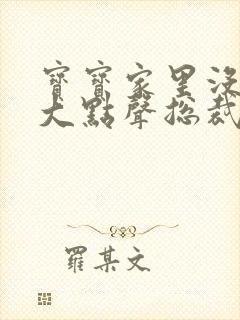 寶寶家里沒
大點聲總裁
羅某文